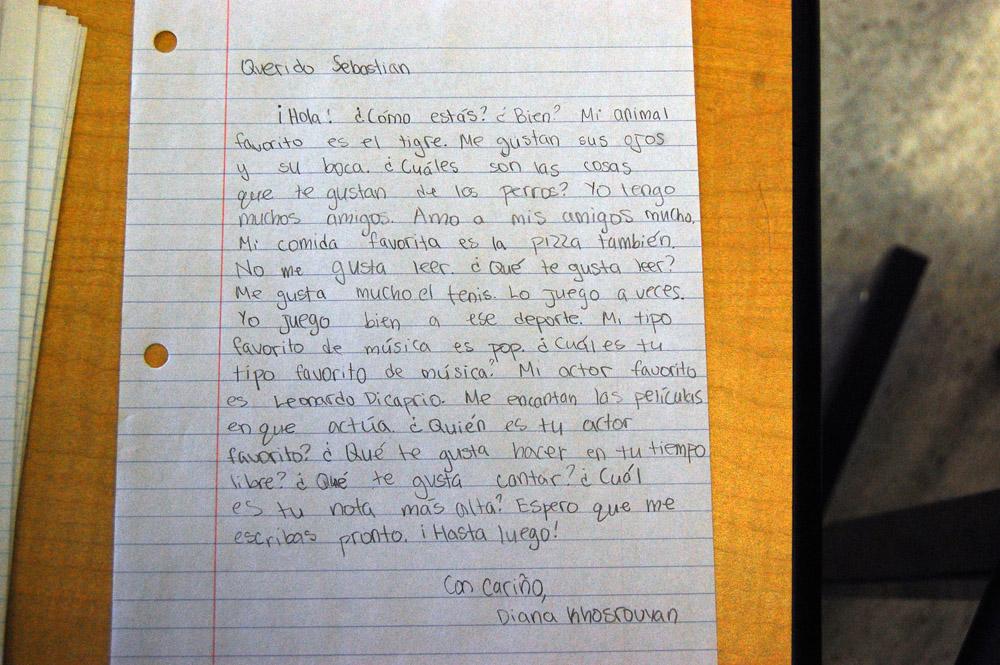 Querido Sebastian
¡Hola! ¿Cómo estás? ¿Bien? Mi animal
favorito es el tigre. Me gustan sus ojos
y su boca. ¿Cuáles son las cosas
que te gustan de los perros? Yo tengo
muchos amigos. Amo a mis amigos mucho.
Mi comida favorita es la pizza también.
No me gusta leer. ¿Qué te gusta leer?
Me gusta mucho el tenis. Lo juego a veces.
Yo juego bien a ese deporte. Mi tipo
favorito de música es pop. ¿Cuál es tu
tipo favorito de música? Mi actor favorito
es Leonardo Dicaprio. Me encantan las películas
en que actúa. ¿Quién es tu actor
favorito? ¿Qué te gusta hacer en tu tiempo
libre? ¿Qué te gusta cantar? ¿Cuál
es tu nota más alta? Espero que me
escribas pronto. ¡Hasta luego!
Con cariño,
Diana Khosrouvan